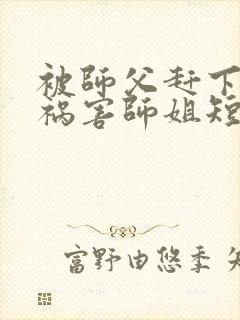 被師父赶下
祸害師姐短
富野由悠季